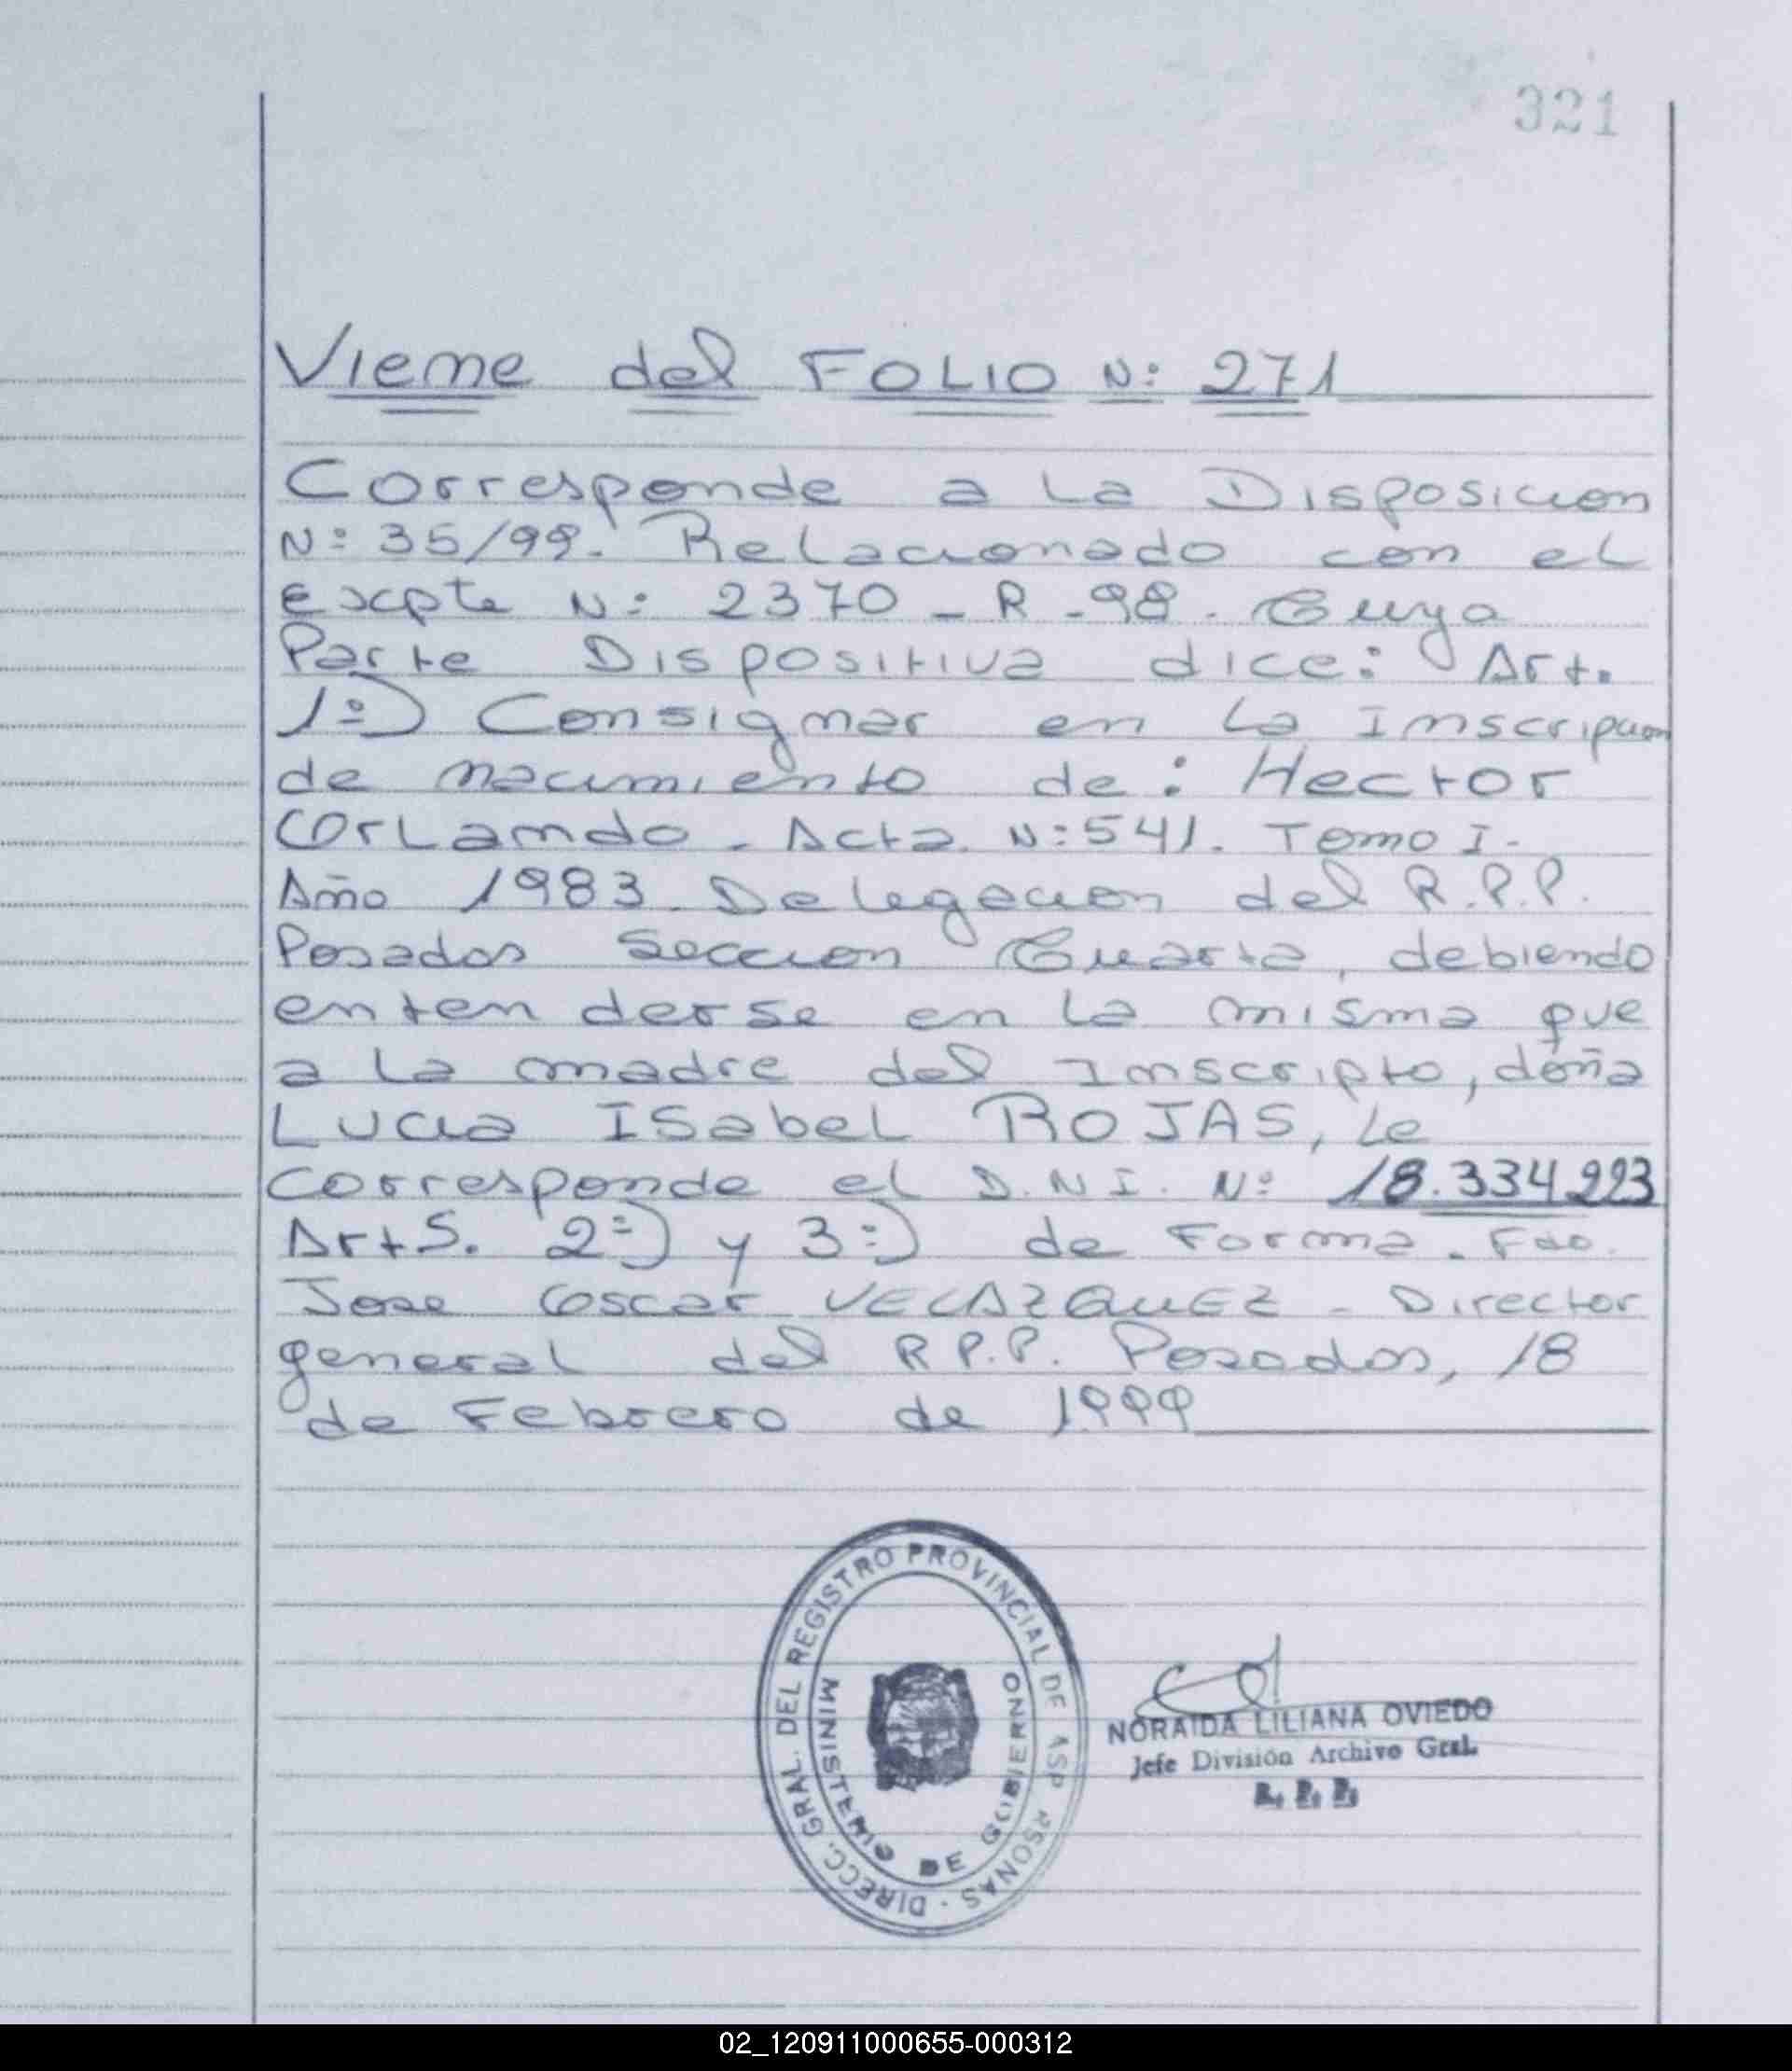 321
Viene del FOLIO N: 271
Corresponde a La Disposicion
N: 35/99. Relacionado con el
Expte N: 2370 - R - 98. Cuya
Parte Dispositiva dice: Art.
1º) Consignar en La Inscripcion
de nacimiento de: Hector
Orlando - Acta N: 541. Tomo I -
Año 1983. Delegacion del R.P.P.
Posadas Seccion Cuarta, debiendo
entenderse en la misma que
a la madre del Inscripto, doña
Lucia Isabel ROJAS, Le
Corresponde el D.N.I. Nº 18.334.223
Arts. 2º) y 3º) de Forma. Fdo.
Jose Oscar VELAZQUEZ - Director
general del R.P.P. Posadas, 18
de Febrero de 1999
DIRECC. GRAL. DEL REGISTRO PROVINCIAL DE ASP RSONAS
MINISTERIO DE GOBIERNO
NORAIDA LILIANA OVIEDO
Jefe División Archivo Gral.
R. P. P.
02_120911000655-000312